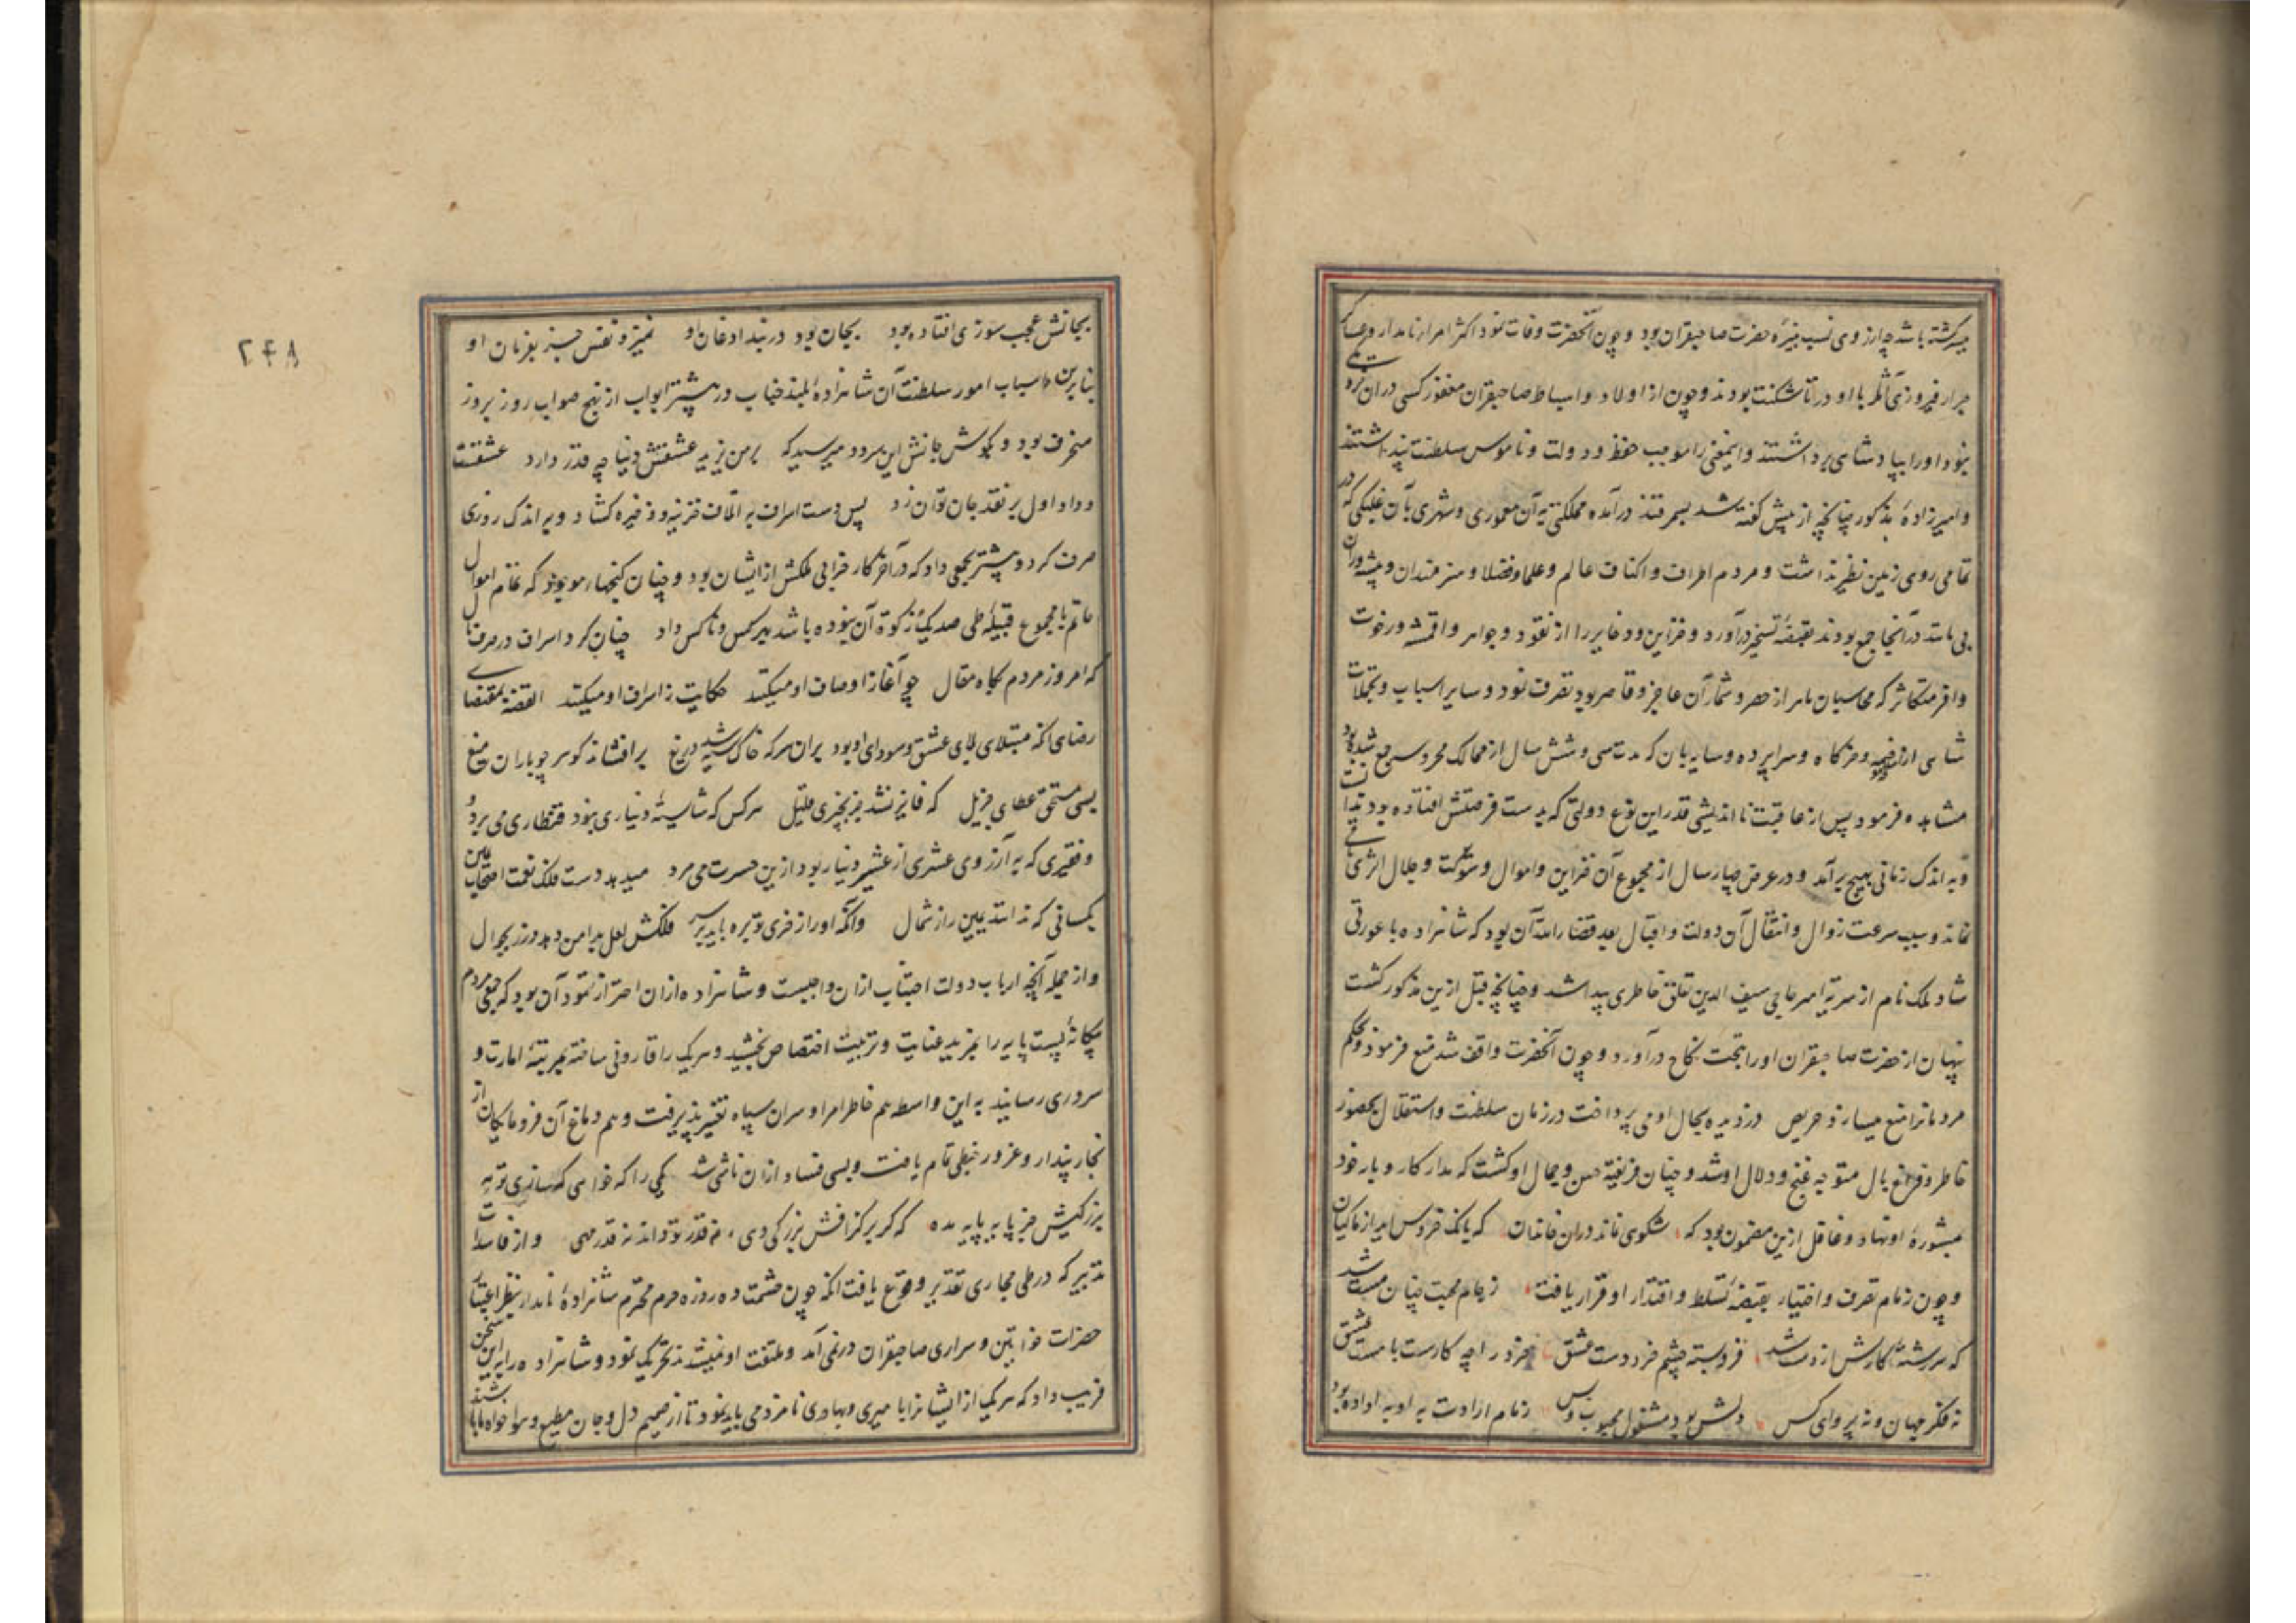 میر گشته باشد چه از روی نسب نبیره حضرت صاحبقران بود و چون آنحضرت وفات نمود اکثر امراء نامدار و عساکر
جرار فیروزی آثار با او در تاشکنت بودند و چون از اولاد و اسباط صاحبقران مغفور کسی در آن نزدیکی
نبود او را بپادشاهی برداشتند و اینمعنی را موجب حفظ دولت و ناموس سلطنت پنداشتند
و امیرزاده مذکور چنانچه از پیش گفته شد بسمرقند درآمده مملکتی به آن معموری و شهری بآن که در
تمامی روی زمین نظیر نداشت و مردم اطراف و اکناف عالم و علما و فضلا و هنرمندان و پیشه وران
در آنجا جمع بودند بقبضه تسخیر درآورد و خزاین و دفاین را از نقود و جواهر و اقمشه و رخوت
وافر متکاثر که محاسبان ماهر از حصر و شمار آن عاجز و قاصر بود تصرف نمود و سایر اسباب و تجملات
شاهی از خیمه و خرگاه و سراپرده و سایه بان که مدت سی و شش سال از ممالک محروسه جمع شده بود
مشاهده فرمود پس از عاقبت نا اندیشی قدر این نوع دولتی که بدست فرصتش افتاده بود ندانست
و به اندک زمانی بهیچ برآمد و در عرض چهار سال از مجموع آن خزاین و اموال و شوکت و جلال اثری
نماند و سبب سرعت زوال و انتقال آن دولت و اقبال بعد قضاء الله آن بود که شاهزاده با عورتی
شاد ملک نام از سریه امیر حاجی سیف الدین تعلق خاطری پیدا شد و چنانچه قبل ازین مذکور گشت
پنهان از حضرت صاحبقران او را بتحت نکاح درآورد و چون آنحضرت واقف شد منع فرمود و بحکم
مردمانرا منع میسازد حریص دزدیده بحال او می پرداخت در زمان سلطنت و استقلال بحضور
خاطر و فراغ بال متوجه غنج و دلال او شد و چنان فریفته حسن و جمال او گشت که مدار کار و بار خود
بمشوره او نهاد و غافل ازین مضمون بود که شکوهی نماند در آن خاندان که بانگ خروس آید از ماکیان
و چون زمام تصرف و اختیار بقبضه تسلط و اقتدار او قرار یافت ز جام محبت چنان مست شد
که سررشته کارش از دست شد فروبسته چشم خرد دست عشق خرد را چه کارست با مست عشق
نه فکر جهان و نه پروای کس دلش بود مشغول محبوب و بس زمام ارادت به او داده بود
بجانش عجب سوزی افتاده بود بجان بود در بند اذعان او نمیزد نفس جز بفرمان او
بنابرین اسباب امور سلطنت آن شاهزاده بلند جناب در بیشتر ابواب از نهج صواب روز بروز
منحرف بود و بگوش جانش این سرود میرسید که بر من یزید عشقش دنیا چه قدر دارد عشقست
و داد اول بر نقد جان توان زد پس دست اسراف به اتلاف خزینه و ذخیره گشاد و به اندک روزی
صرف کرد و بیشتر بجمعی داد که در آخر کار خرابی ملکش از ایشان بود و چنان گنجهاء موفور که تمام اموال
حاتم با مجموع قبیله طی صد یک زکوة آن نبوده باشد بهر کس و ناکس داد چنان کرد اسراف در صرف مال
که امروز مردم بگاه مقال چو آغاز اوصاف او میکنند حکایت ز اسراف او میکنند القصه بمقتضای
رضای آنکه مبتلای بلای عشق و سودای او بود بران سر که خاک سیه در بر افشاند گوهر چو باران میغ
بسی مستحق عطای جزیل که فایز نشد جز بچیزی قلیل هر کس که شایسته دیناری نبود قنطاری می برد و
فقیری که به آرزوی عشری از عشیر دینار بود ازین حسرت می مرد میدهد دست فلک نعمت اصحاب یمین
بکسانی که ندانند یمین را ز شمال وآنکه او را ز خری توبره باید بر سر فلکش لعل بدامن دهد و زر بجوال
و از جمله آنچه ارباب دولت اجتناب از آن واجبست و شاهزاده از آن احتراز ننمود آن بود که جمعی مردم
پست پایه را بمزید عنایت و تربیت اختصاص بخشید و هر یک را قارونی ساخته بمرتبه امارت و
سروری رسانید به این واسطه هم خاطر امرا و سران سپاه تغیر پذیرفت و هم دماغ آن فرومایگان از
بخار پندار و غرور خبطی تمام یافت و بسی فساد از آن ناشی شد یکی را که خواهی که سازی تو به
بزرگیش جز پایه پایه مده که گر بر گزافش بزرگی دهی نه قدر تو داند نه قدر مهی و از فاسدات
تدبیر که در طی مجاری تقدیر وقوع یافت آنکه چون حشمت ده روزه حرم محترم شاهزاده نامدار بنظر اعتبار
حضرات خواتین و سراری صاحبقران در نمی آمد و ملتفت او نمیشدند تحریک نمود و شاهزاده را به این سخن
فریب داد که هر یک از ایشانرا با میری و بهادری نامزد می باید نمود تا از صمیم دل و جان مطیع و هواخواه ما باشند
۲۴۸